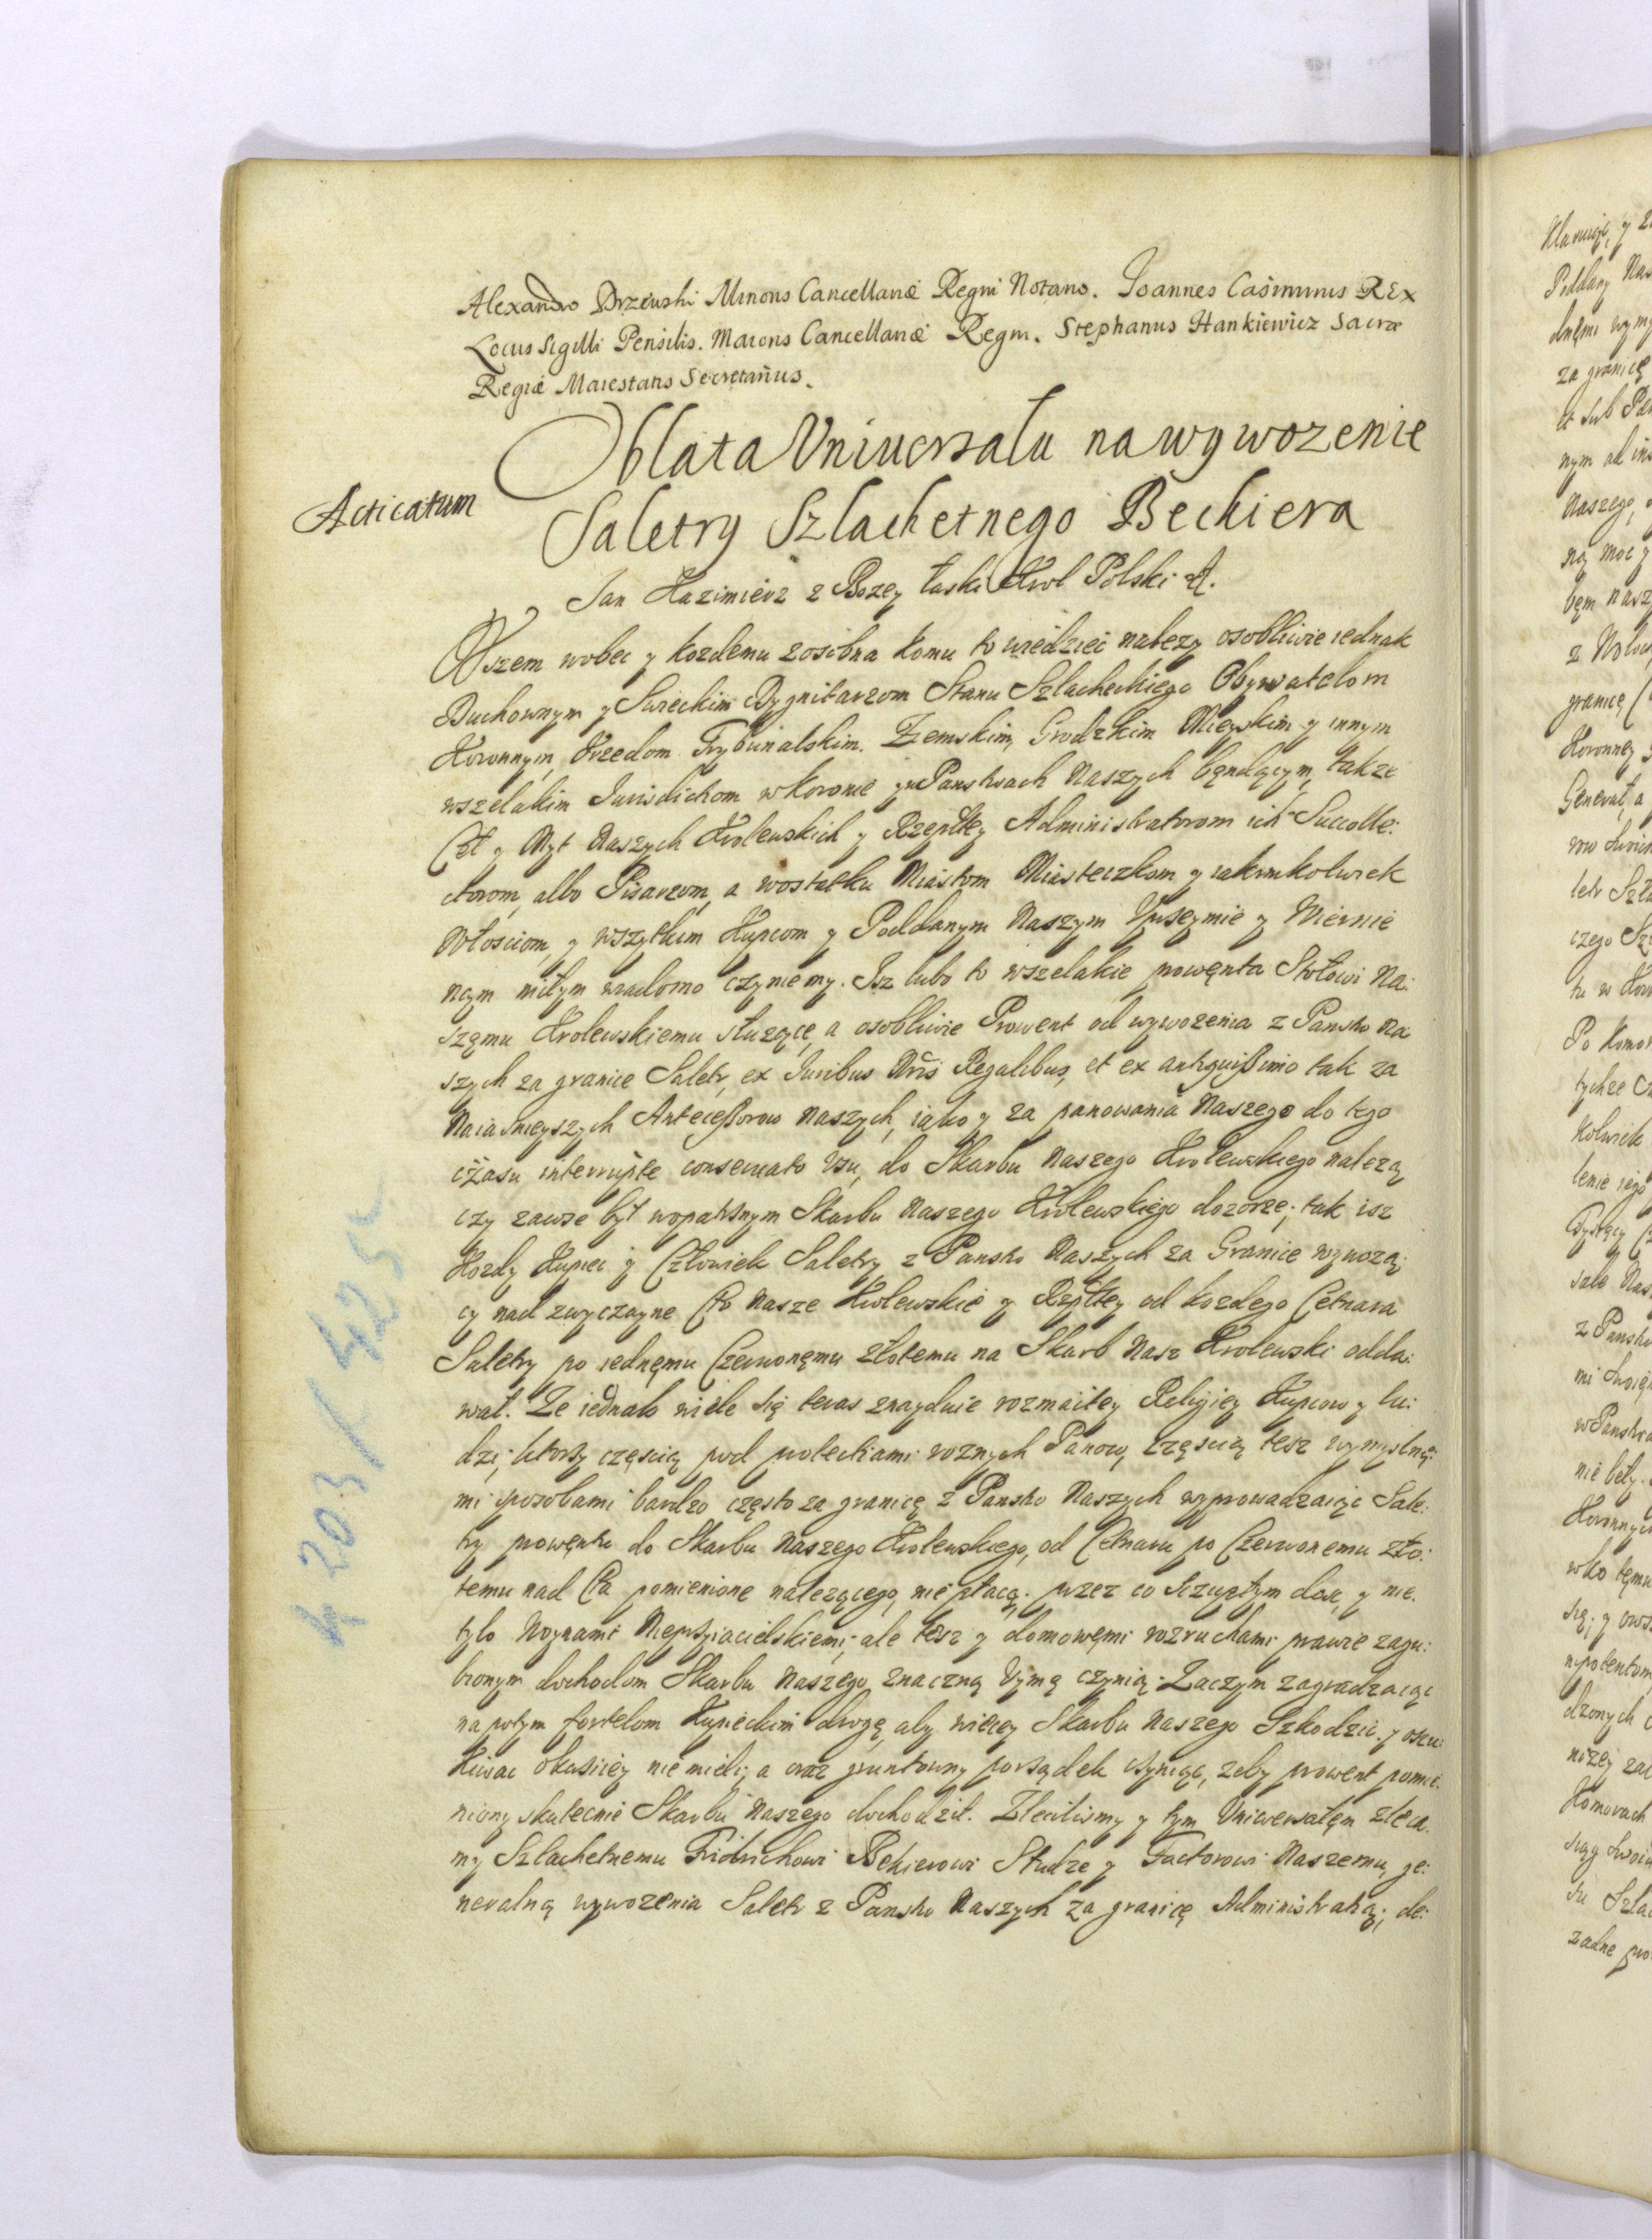 Alexandro Drzewski Minoris Cancellariæ Regni Notario. Joannes Casimirus REx
Locus Sigilli Pensilis. Maioris Cancellariæ Regni. Stephanus Hankiewicz Sacræ
Regiæ Maiestatis Secretarius.
Oblata Vniuersału na wywozenie
Acticatum
Saletry Szlachetnego Bechiera
Jan Kazimierz z Bozey łaski Krol Polski
Wszem wobec y kozdemu zosobna komu to wiedzieć nalezy osobliwie iednak
Duchownym y Swieckim Dygnitarzom Stanu Szlacheckiego Obywatelom
Koronnym, Vrzedom Trybunalskim. Ziemskim, Grodzkim Mieyskim y innym
wszelakim Jurisdictiom w koronie y Panstwach Naszych będącym, także
Ceł y Myt Naszych Krolewskich y Rzeptey Administratorom ich Succolle:
ctorom, albo Pisarzom, a wostatku Miastom Miasteczkom y iakimkolwiek
Włosciom, y wszytkim Kupcom y Poddanym Naszym Vprzeymie y Wiernie
nam miłym wiadomo czyniemy. Isz lubo to wszelakie prowenta Stołowi Na:
szęmu Krolewskiemu słuzącę, a osobliwie Prowent od wywozenia z Panstw Na
szych za granice Saletr, ex Juribus Nris Regalibus, et ex antiquissimo tak za
Naiasnieyszych Antecessorow Naszych, iako y za panowania Naszego do tego
czasu interrupte conseruato Vsu, do Skarbu Naszego Krolewskiego nalezą
czy zawsze był wopatrznym Skarbu Naszego Krolewskiego dozorze; tak isz
Kozdy Kupiec y Człowiek Saletry z Panstw Naszych za Granice wywozą:
cy nad zwyczayne Cło Nasze Krolewskie y Rzptey od kozdego Cetnara
Saletry po iednęmu Czerwonęmu złotemu na Skarb Nasz Krolewski odda:
wał. Ze iednak wiele się teras znayduie rozmaitey Religiey Kupcow y lu:
dzi; ktorzy częscią pod protectiami roznych Panow, częscią tesz wymyslnę:
mi sposobami bardzo często za granicę z Panstw Naszych wyprowadzaiąc Sale:
try prowentu do Skarbu Naszego Krolewskiego, od Cetnara po Czerwonemu zło:
temu nad Cła pomienione nalezącego, nie płacą. przez co Szczupłym dosc, y nie.
tylo Woynami Nieprzyiacielskiemi, ale tesz y domowęmi rozruchami prawie zagu:
bionym dochodom Skarbu Naszego znaczną Vymę czynią. Zaczym zagradzaiąc
na potym fortelom Kupieckim drogę, aby więcey Skarbu Naszego Szkodzic y oszu:
kiwac okasiiey nie mieli, a oraz gruntowny porządek czyniąc, zeby prowent pomie:
niony skutecnie Skarbu Naszego dochodził. Zleciliśmy y tym Vniwersałęm zleca:
my Szlachetnemu Fridrichowi Bekierowi Słudze y Factorowi Naszemu, ge:
neralną wywozenia Saletr z Panstw Naszych za granicę Administratią; de:
4 203 / 425